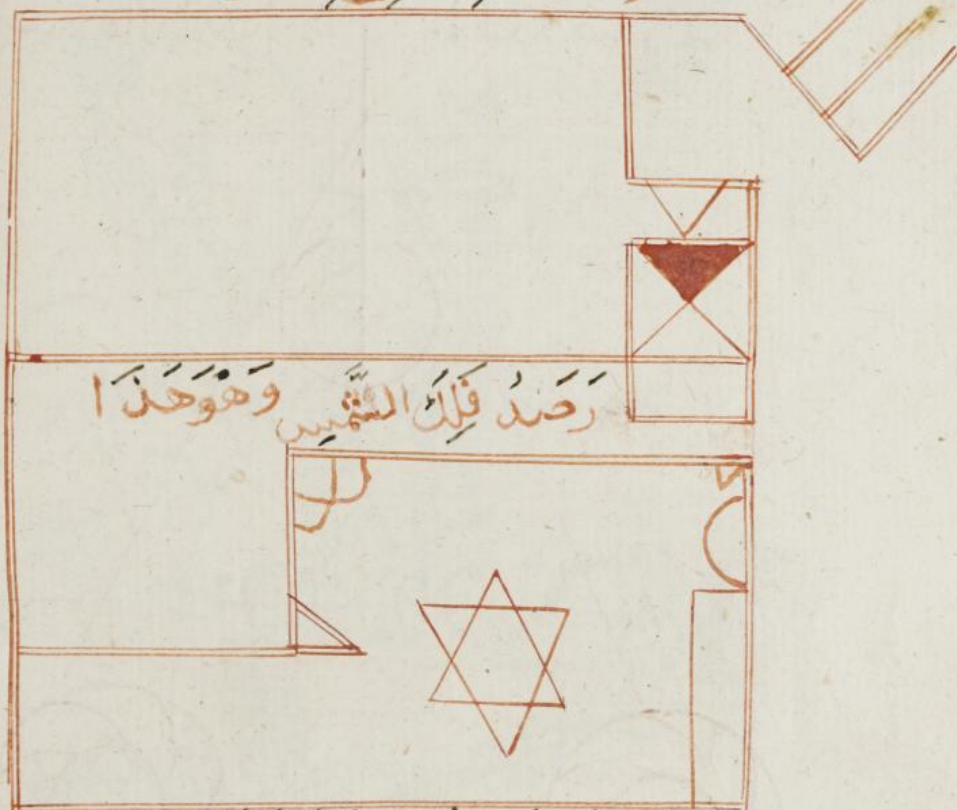 رَصَدُ فَلَكِ الشَّمْسِ وَهُوَ هَذَا